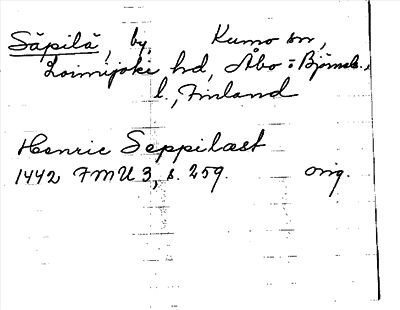 Säpilä, by, Kumo sn,
Loimijoki hd, Åbo = Björneb.,
l., Finland
Henric Seppilæst
1442 FMU 3, s. 259. orig.